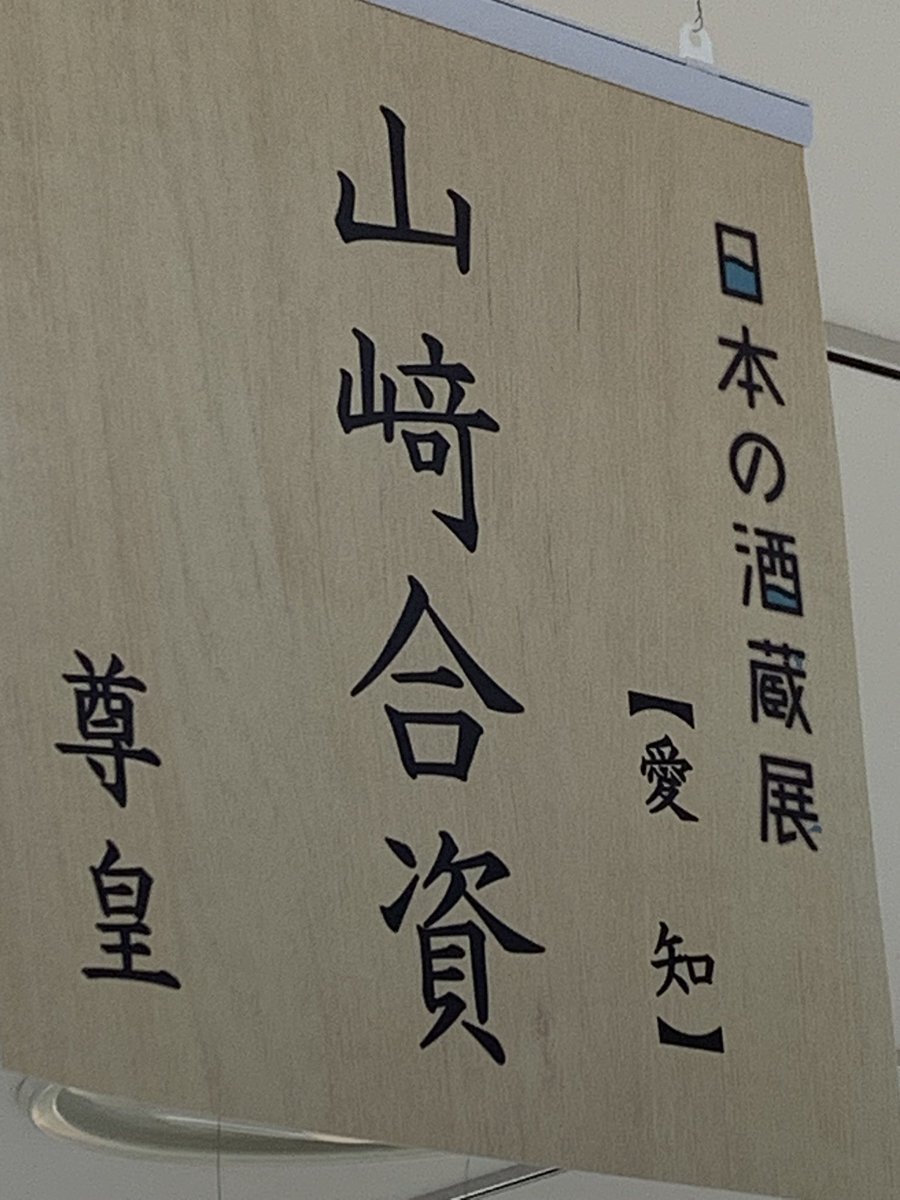 日本の酒蔵展
【愛知】
山﨑合資
尊皇